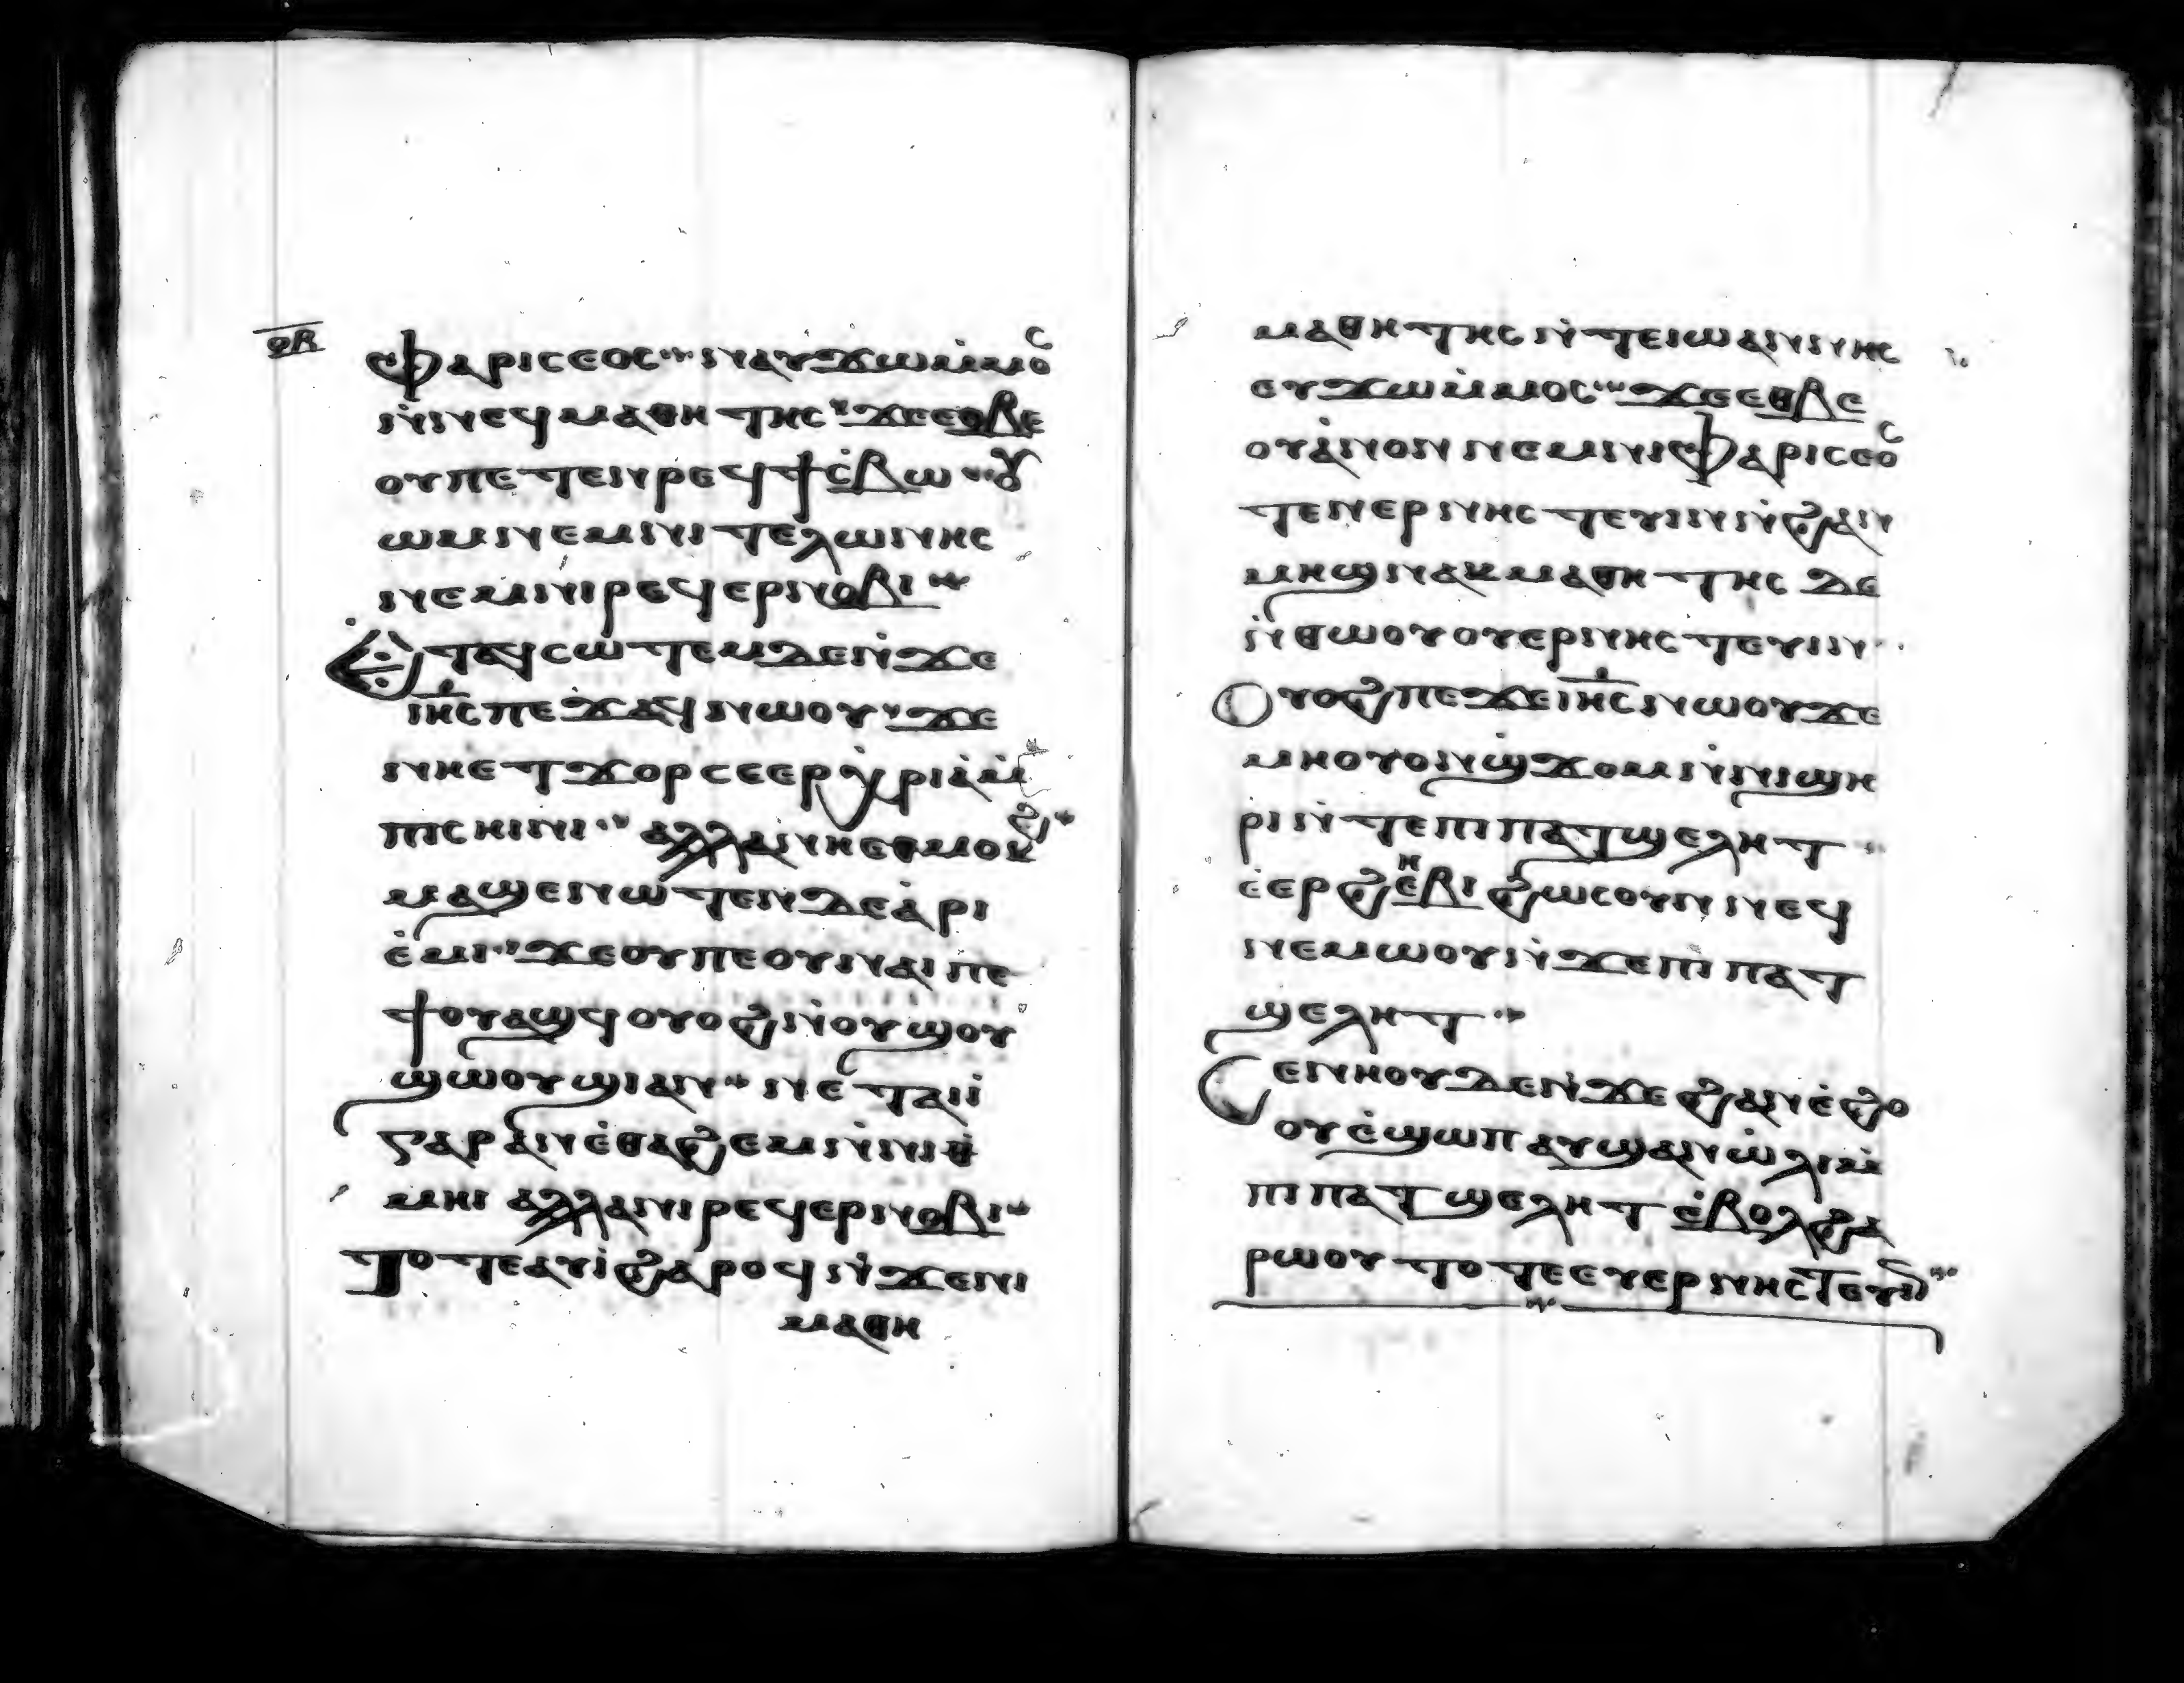 ϥⲃ
ⲫⲁⲣⲓⲥⲉⲟⲥ ⲛⲁⲩϫⲱⲙ̇ⲙⲟⲥ
ⲛ̇ⲛⲉϥⲙⲁⲑⲏⲧⲏⲥ ϫⲉⲉⲑⲃⲉ
ⲟⲩⲡⲉⲧⲉⲛⲣⲉϥϯⲉ̇ⲃⲱ ⲟⲩ
ⲱⲙⲛⲉⲙⲛⲓⲧⲉⲗⲱⲛⲏⲥ
ⲛⲉⲙⲛⲓⲣⲉϥⲉⲣⲛⲟⲃⲓ
ⲉⲧⲁϥⲥⲱⲧⲉⲙⲇⲉⲛ̇ϫⲉ
ⲓⲏⲥⲡⲉϫⲁϥⲛⲱⲟⲩ ϫⲉ
ⲛⲏⲉⲧϫⲟⲣⲥⲉⲉⲣⲭⲣⲓⲁ̇ⲙ̇
ⲡⲓⲥⲏⲓⲛⲓ ⲁⲗⲗⲁⲛⲏⲉⲑⲙⲟⲕϩ
ⲙⲁϣⲉⲛⲱⲧⲉⲛⲇⲉⲁ̇ⲣⲓ
ⲉ̇ⲙⲓ ϫⲉⲟⲩⲡⲉⲟⲩⲛⲁⲓⲡⲉ
ϯⲟⲩⲁϣϥⲟⲩⲟϩⲛ̇ⲟⲩϣⲟⲩ
ϣⲱⲟⲩϣⲓⲁⲛ ⲛⲉⲧⲁⲓ̇ⲓ̇
ⲅⲁⲣⲁⲛⲉ̇ⲑⲁϩⲉⲙⲛ̇ⲛⲓⲑ
ⲙⲏⲓ ⲁⲗⲗⲁⲛⲓⲣⲉϥⲉⲣⲛⲟⲃⲓ
ⲧⲟⲧⲉⲁⲩⲓ̇ϩⲁⲣⲟϥⲛ̇ϫⲉⲛⲓ
ⲙⲁⲑⲏ
ⲙⲁⲑⲏⲧⲏⲥⲛ̇ⲧⲉⲓⲱⲁⲛⲛⲏⲥ
ⲉⲩϫⲱⲙ̇ⲙⲟⲥ ϫⲉⲉⲑⲃⲉ
ⲟⲩⲁ̇ⲛⲟⲛⲛⲉⲙⲛⲓⲫⲁⲣⲓⲥⲉⲟⲥ
ⲧⲉⲛⲉⲣⲛⲏⲥⲧⲉⲩⲓⲛⲛ̇ϩⲁⲛ
ⲙⲏϣⲛⲁⲕⲙⲁⲑⲏⲧⲏⲥ ⲇⲉ
ⲛ̇ⲑⲱⲟⲩⲟⲩⲉⲣⲛⲏⲥⲧⲉⲩⲓⲛ
ⲟⲩⲟϩⲡⲉϫⲉⲓⲏⲥⲛⲱⲟⲩϫⲉ
ⲙⲏⲟⲩⲟⲛϣ̇ϫⲟⲙⲛ̇ⲛⲓϣⲏ
ⲣⲓⲛ̇ⲧⲉⲡⲓⲡⲁⲧϣⲉⲗⲏⲧ
ⲉ̇ⲉⲣϩⲏⲉ̇ⲃⲓ ϩⲱⲥⲟⲩⲛⲛⲉϥ
ⲛⲉⲙⲱⲟⲩⲛ̇ϫⲉⲡⲓⲡⲁⲧ
ϣⲉⲗⲏⲧ
ⲥⲉⲛⲏⲟⲩⲇⲉⲛ̇ϫⲉϩⲁⲛⲉ̇ϩⲟ
ⲟⲩⲉ̇ϣⲱⲡⲁⲩϣⲁⲛⲱ̇ⲗⲓⲙ̇
ⲡⲓⲡⲁⲧϣⲉⲗⲏⲧⲉ̇ⲃⲟⲗϩⲁ
ⲣⲱⲟⲩⲧⲟⲧⲉⲉⲩⲉⲣⲛⲏⲥⲧⲉⲩⲓⲛ